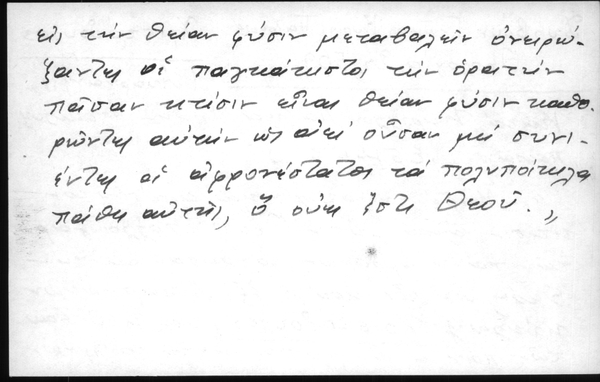 εἰς τὴν θείαν φύσιν μεταβαλεῖν ὀνειρώ-
ξαντες οἱ παγκάκιστοι τὴν ὁρατὴν
πᾶσαν κτίσιν εἶναι θείαν φύσιν καθο-
ρῶντες αὐτὴν ὡς ἀεὶ οὖσαν μὴ συνι-
έντες οἱ ἀφρονέστατοι τὰ πολυποίκιλα
πάθη αὐτῆς, ὃ οὐκ ἔστι Θεοῦ.,,